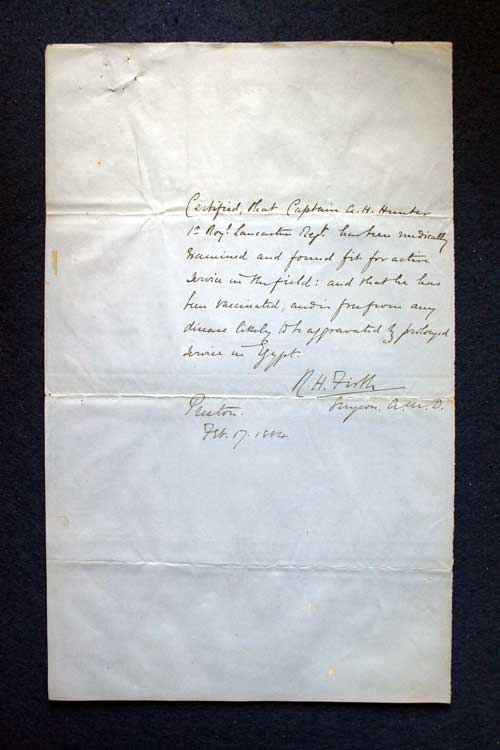 Certified, that Captain A. H. Hunter
1st Royl. Lancaster Regt. has been medically
examined and found fit for active
service in the field: and that he has
been vaccinated, and is free from any
disease likely to be aggravated by prolonged
service in Egypt.
R. H. Firth
Surgeon. A.M.D.
Preston.
Feb. 17. 1884